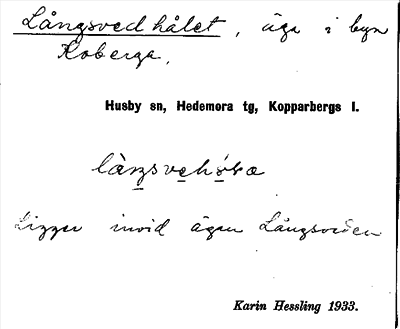 Långsvedhålet, äga i byn
Koberga,
Husby sn, Hedemora tg, Kopparbergs l.
Ligger invid ägan Långsveden
Karin Hessling 1933.